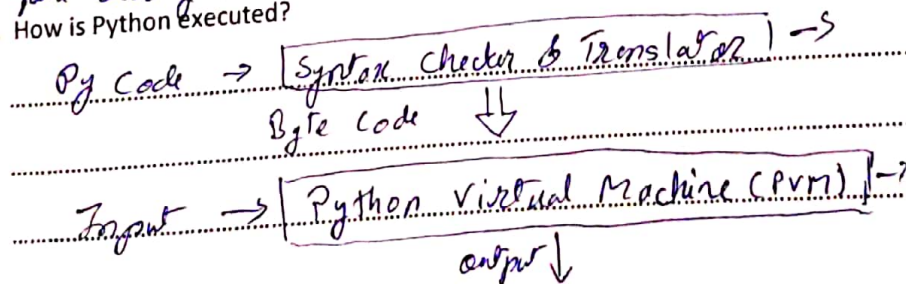 How is Python executed?
Py Code → Syntax Checker & Translator →
Byte Code ⇓
Input → Python Virtual Machine (PVM) →
output ↓